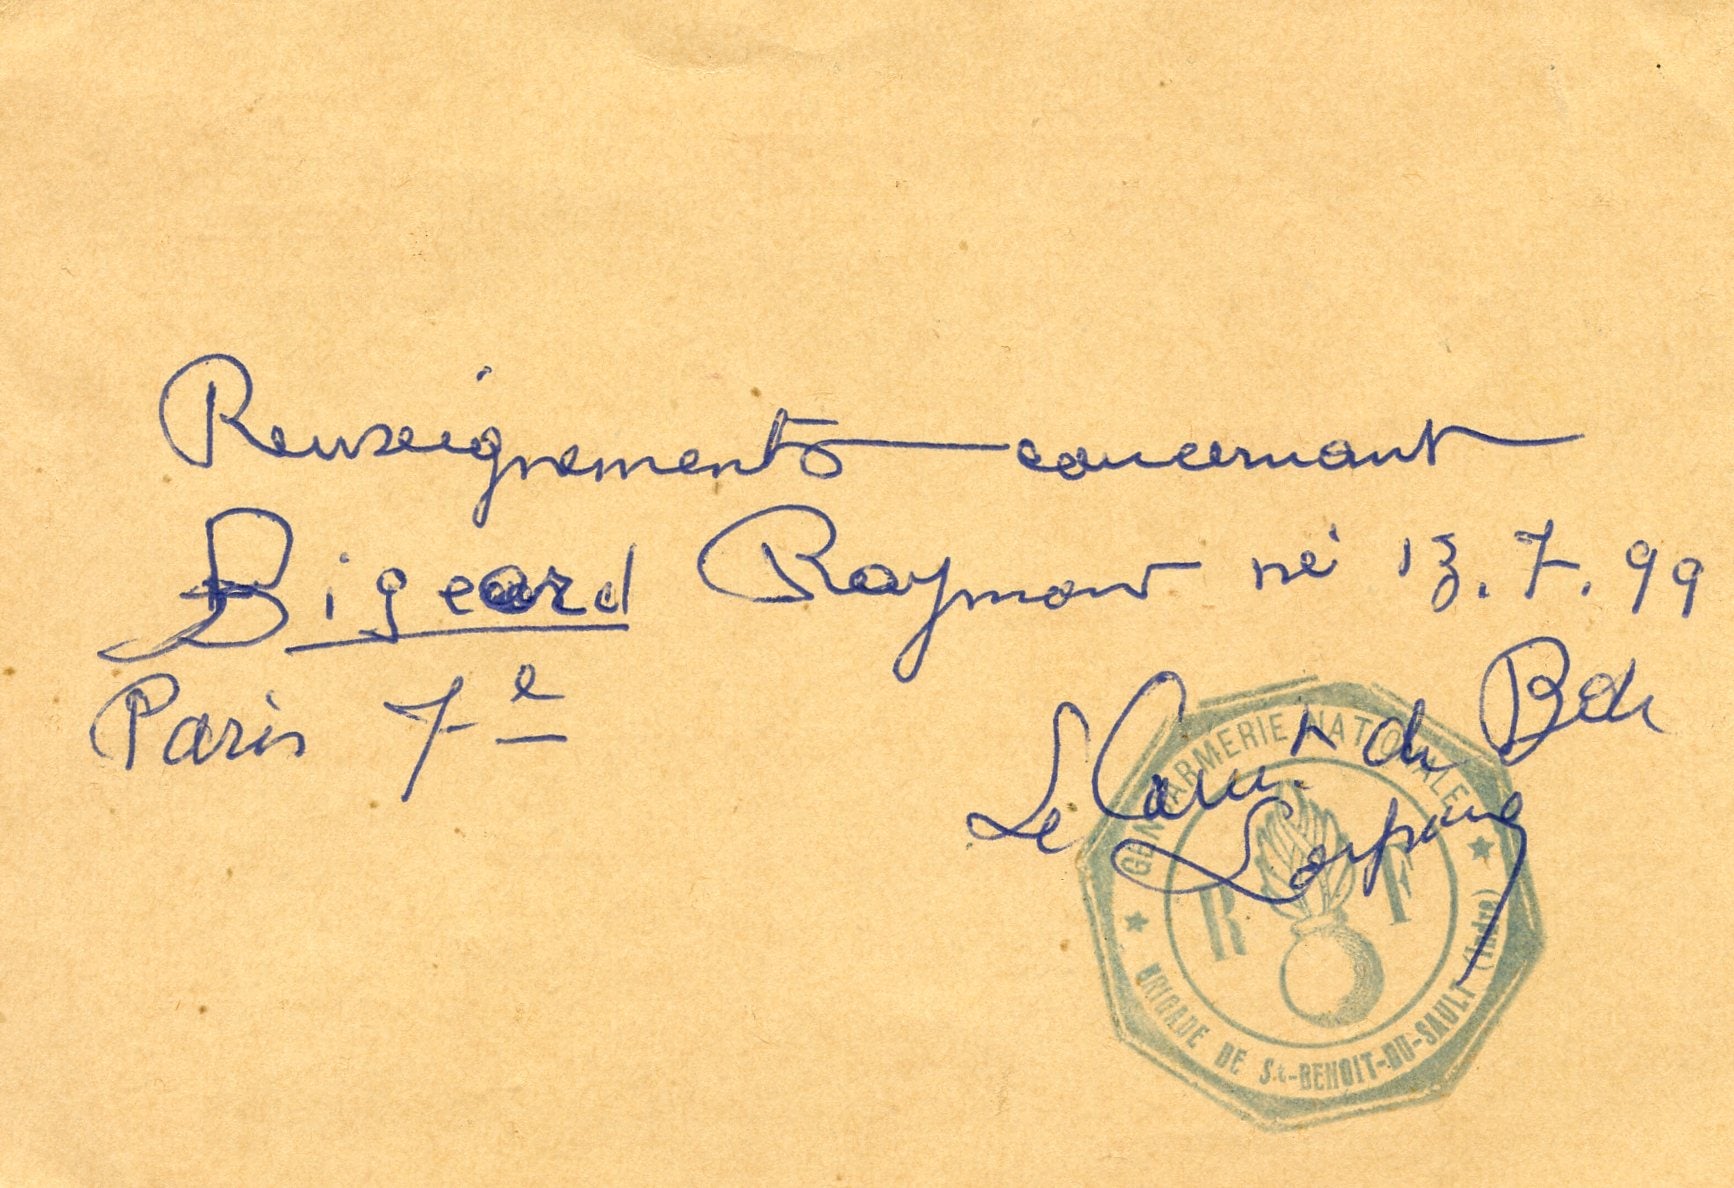 Renseignements concernant
Bigeard Raymond né 13.7.99
Paris 7e
Le Com. de Bde
GENDARMERIE NATIONALE
R F
BRIGADE DE St-BENOIT-DU-SAULT (Indre)